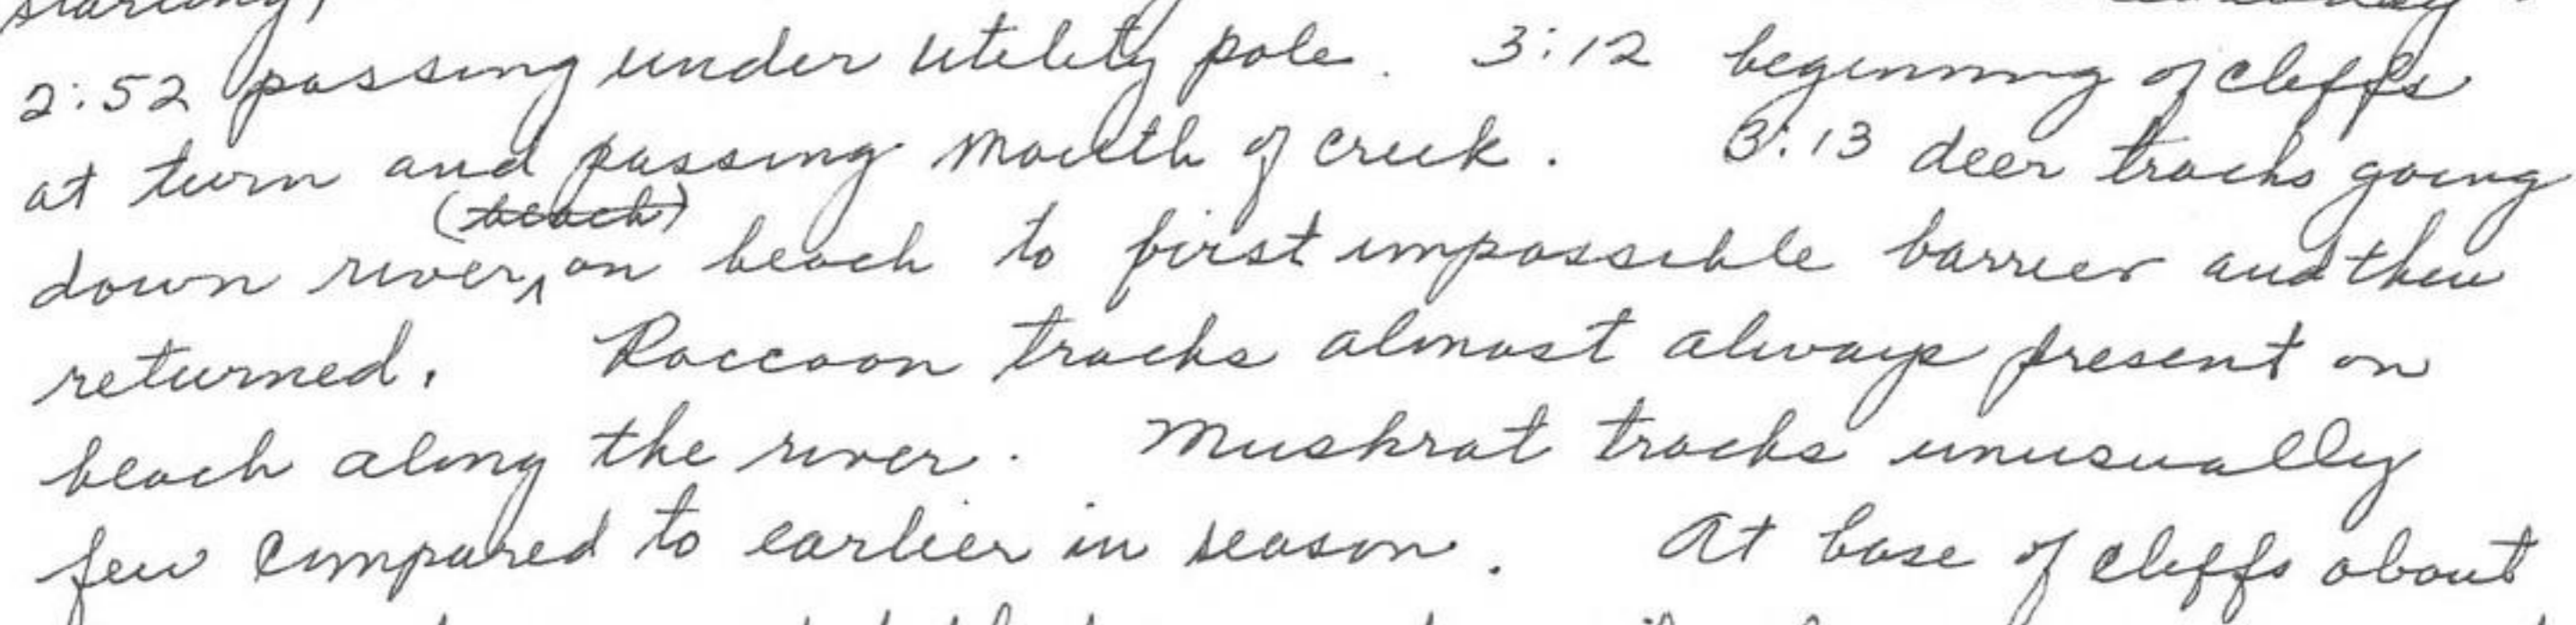 2:52 passing under utility pole. 3:12 beginning of cliffs
at turn and passing mouth of creek. 3:13 deer tracks going
(beach)
down river, on beach to first impassible barrier and then
returned. Raccoon tracks almost always present on
beach along the river. Muskrat tracks unusually
few compared to earlier in season. At base of cliffs about